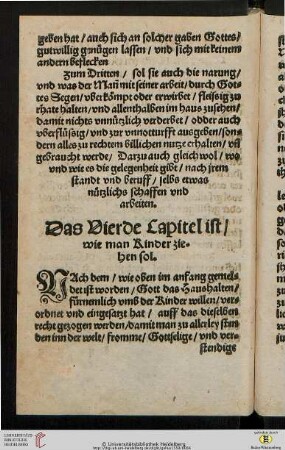 geben hat / auch sich an solcher gaben Gottes /
gutwillig genügen lassen / und sich mit keinem
andern beflecken
Zum Dritten / sol sie auch die narung /
und was der Man̄ mit seiner arbeit / durch Got-
tes Segen / uberkömpt oder erwirbet / fleissig zu
rhate halten / und allenthalben im haus zusehen /
damit nichts unnützlich verderbet / odder auch
uberflüssig / und zur unnotturfft ausgeben / son-
dern alles zu rechtem billichen nutze erhalten / un̄
gebraucht werde / Darzu auch gleich wol / wo
und wie es die gelegenheit gibt / nach jrem
standt und beruff / selbs etwas
nützlichs schaffen und
arbeiten.
Das Vierde Capitel ist /
wie man Kinder zie-
hen sol.
NAch dem / wie oben im anfang gemel-
det ist worden / Gott das Haushalten /
fürnemlich umb der Kinder willen / ver-
ordnet und eingesatzt hat / auff das dieselben
recht gezogen werden / damit man zu allerley sten
den inn der welt / fromme / Gottselige / und ver-
stendige
© Universitätsbibliothek Heidelberg